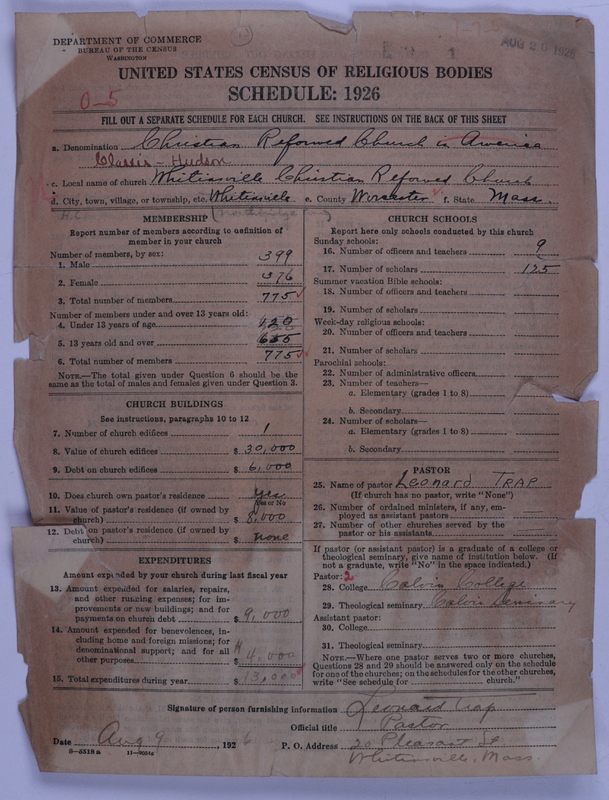 DEPARTMENT OF COMMERCE
BUREAU OF THE CENSUS
WASHINGTON
AUG 20 1926
UNITED STATES CENSUS OF RELIGIOUS BODIES
SCHEDULE: 1926
0-5
FILL OUT A SEPARATE SCHEDULE FOR EACH CHURCH. SEE INSTRUCTIONS ON THE BACK OF THIS SHEET
a. Denomination Christian Reformed Church in America
Classis - Hudson
c. Local name of church Whitinsville Christian Reformed Church
d. City, town, village, or township, etc. Whitinsville e. County Worcester f. State Mass.
MEMBERSHIP
Report number of members according to definition of
member in your church
Number of members, by sex:
1. Male 399
2. Female 376
3. Total number of members 775
Number of members under and over 13 years old:
4. Under 13 years of age 120
5. 13 years old and over 655
6. Total number of members 775
NOTE.—The total given under Question 6 should be
same as the total of males and females given under Question 3.
CHURCH BUILDINGS
See instructions, paragraphs 10 to 12
7. Number of church edifices 1
8. Value of church edifices $ 30,000
9. Debt on church edifices $ 6,000
10. Does church own pastor's residence yes
Yes or No
11. Value of pastor's residence (if owned by
church) $ 8,000
12. Debt on pastor's residence (if owned by
church) $ none
EXPENDITURES
Amount expended by your church during last fiscal year
13. Amount expended for salaries, repairs,
and other running expenses; for im-
provements or new buildings; and for
payments on church debt $ 9,000
14. Amount expended for benevolences, in-
cluding home and foreign missions; for
denominational support; and for all
other purposes $ 4,000
15. Total expenditures during year $ 13,000
CHURCH SCHOOLS
Report here only schools conducted by this church
Sunday schools:
16. Number of officers and teachers 9
17. Number of scholars 125
Summer vacation Bible schools:
18. Number of officers and teachers
19. Number of scholars
Week-day religious schools:
20. Number of officers and teachers
21. Number of scholars
Parochial schools:
22. Number of administrative officers
23. Number of teachers—
a. Elementary (grades 1 to 8)
b. Secondary
24. Number of scholars—
a. Elementary (grades 1 to 8)
b. Secondary
PASTOR
25. Name of pastor Leonard TRAP
(If church has no pastor, write "None")
26. Number of ordained ministers, if any, em-
ployed as assistant pastors
27. Number of other churches served by the
pastor or his assistants
If pastor (or assistant pastor) is a graduate of a college or
theological seminary, give name of institution below. (If
not a graduate, write "No" in the space indicated.)
Pastor: 2
28. College Calvin College
29. Theological seminary Calvin Seminary
Assistant pastor:
30. College
31. Theological seminary
NOTE.—Where one pastor serves two or more churches,
Questions 28 and 29 should be answered only on the schedule
for one of the churches; on the schedules for the other churches,
write "See schedule for church."
Signature of person furnishing information Leonard Trap
Official title Pastor
Date Aug 9, 1926 P. O. Address 20 Pleasant St
Whitinsville, Mass.